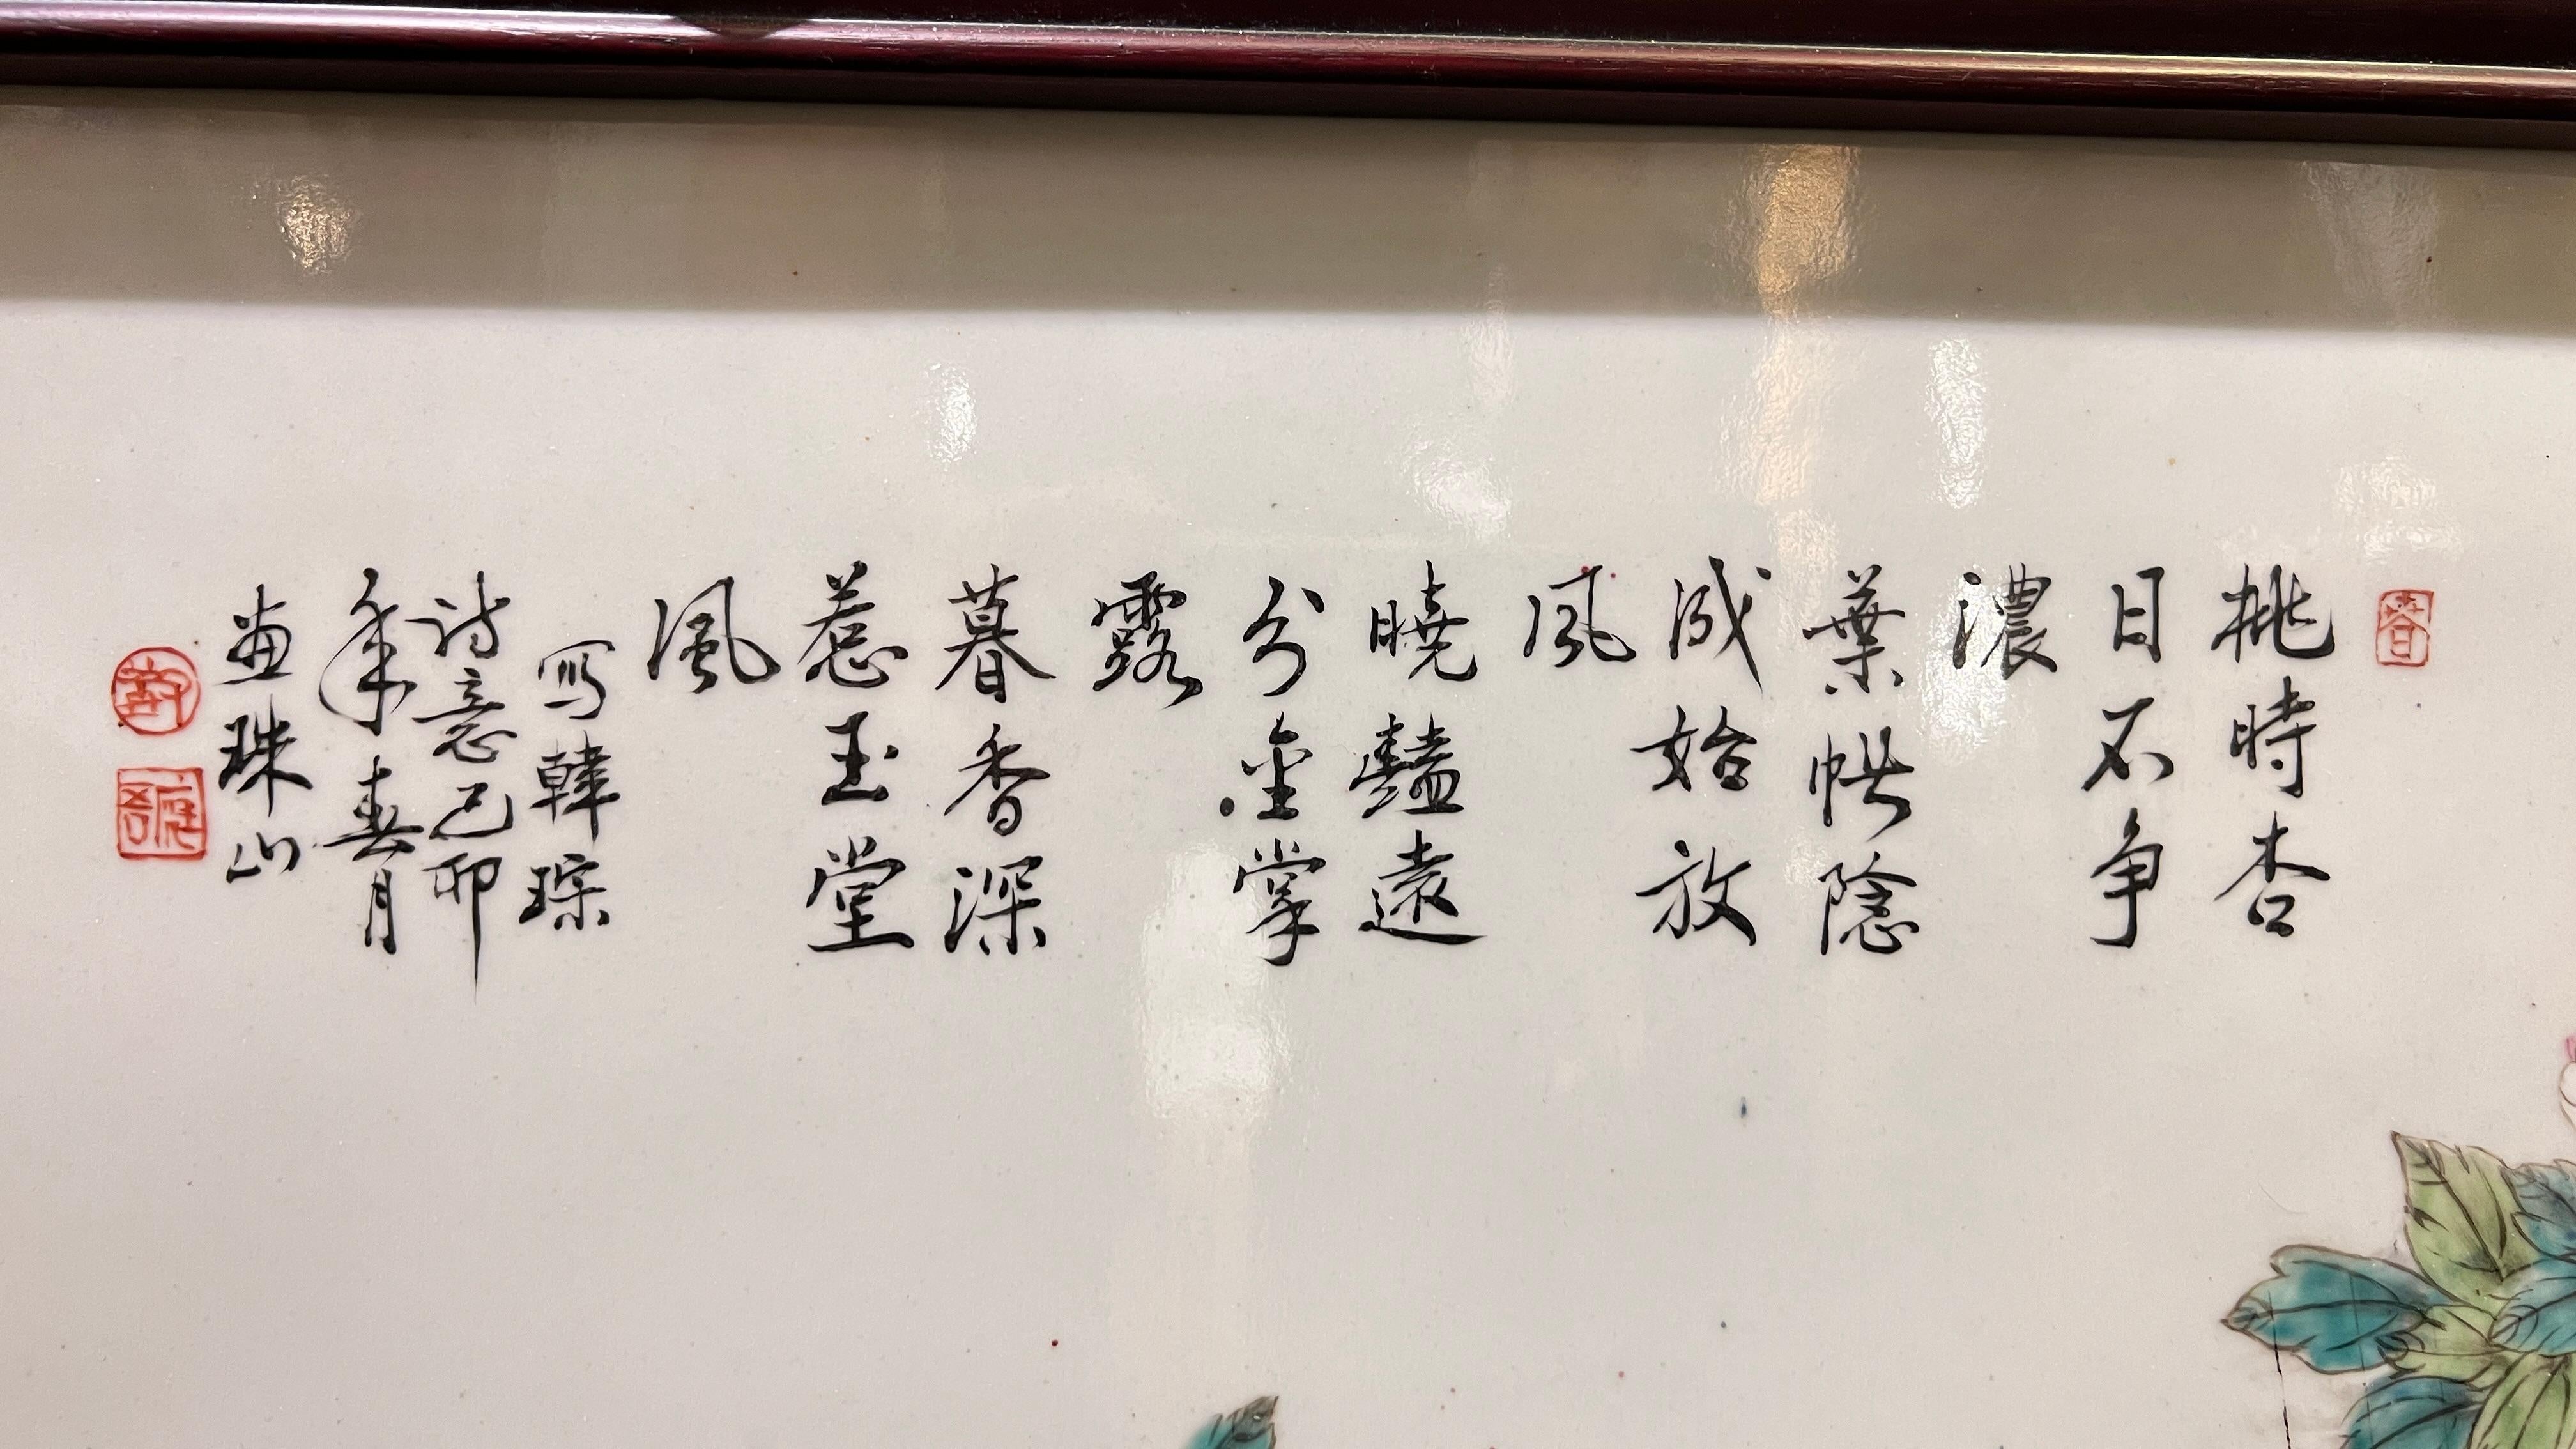 桃時杏
日不争
濃
葉帐陰
成始放
風
曉豔遠
分金掌
露
暮香深
惹玉堂
風
寫韓琮
詩意己卯
年春月
畫珠山